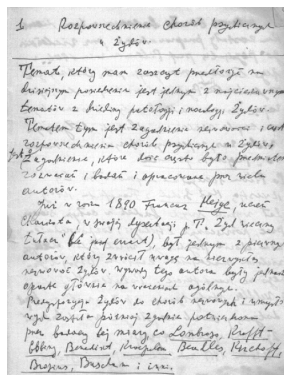 1 Rozpowszechnienie chorób psychicznych
u Żydów.
Temat, który mam zaszczyt przedstawić na
dzisiejszym posiedzeniu jest jednym z najciekawszych
tematów z dziedziny patologji i nozologji Żydów.
Tematem tym jest zagadnienie nerwowości i
rozpowszechnienia chorób psychicznych u Żydów.
Jest zagadnienie, które dość często było przedmiotem
rozważań i badań i opracowane przez wielu
autorów.
Już w roku 1890 Francuz Meige, uczeń
Charcota, w swojej dysertacji p. T. Żyd wieczny
tułacz (le juif errant), był jednym z pierwszych
autorów, który zwrócił uwagę na
nerwowość Żydów. wywody tego autora były jednak
oparte głównie na wrażeniu ogólnem.
Predyspozycja Żydów do chorób nerwowych i umysłowych
została później potwierdzona
przez badaczy tej miary, co Lombroso, Krafft-
Ebing, Benedikt, Kraepelin, Kirchoff,
Buschan i inni.